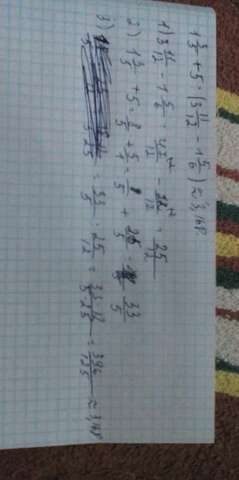 1 3/5 + 5 : (3 11/12 - 1 5/6) ≈ 3,168
1) 3 11/12 - 1 5/6 = 47/12 - 22/12 = 25/12
2) 1 3/5 + 5 = 8/5 + 5/1 = 8/5 + 25/5 = 33/5
3) = 33/5 : 25/12 = 33·12/5·25 = 396/125 ≈ 3,168